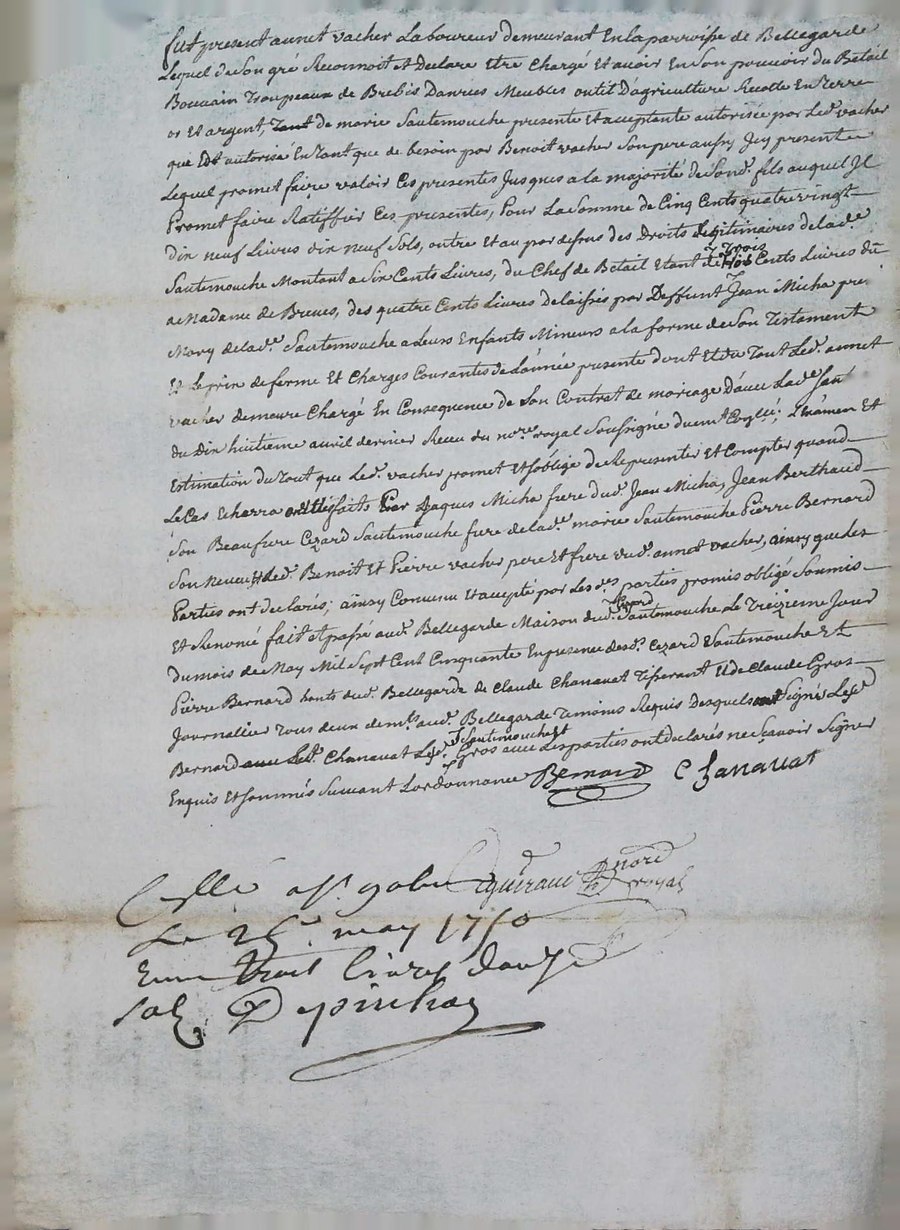 fut present annet vacher Laboureur demeurant En la parroisse de Bellegarde
Lequel de Son gré Reconnoit et Declare Etre Chargé Et avoir En Son pouvoir du Betail
Bouvain Troupeaux de Brebis Danrues Meubles outil D'agriculture Recolte En Terre
or Et argent, Tant de marie Sautemouche presente Et acceptante autorisée par Led. vacher
que Est autorisé En Tant que de besoin par Benoit vacher Son pere aussy Jcy present
Lequel promet faire valoir Ces presentes Jusques a la majorité de Sond. fils auquel Jl
Promet faire Ratiffier Ces presentes, Pour La Somme de Cinq Cents quatre vingt
dix neuf Livres dix neuf Sols, outre Et au par dessus des Droits Legitimaires de lad.e
Sautemouche Montant a Six Cents Livres, du Chef de Betail Etant de Trois Cents Livres du
a Madame de Breves, des quatre Cents Livres delaissés par Deffunt Jean Micha
Mary de lad.e Sautemouche a Leurs Enfants Mineurs a la forme de Son Testament
Et Le prix de ferme Et Charges Courantes de L'année presente dont Et du Tout Led. annet
vacher demeure Chargé En Consequence de Son Contrat de mariage D'avec Lad.e
du Dix huitieme avril dernier Receu du no.re royal Soussigné duem.t L'Examen Et
Estimation du Tout que Led. vacher promet Et s'oblige de Representer Et Compter quand
Le Cas Echerra ont Etés faits Par Jaques Micha frere dud. Jean Micha, Jean Berthaud
Son Beaufrere Cezard Sautemouche frere de lad.e marie Sautemouche Pierre Bernard
Son neveu Et de d. Benoit Et Pierre vacher pere Et frere dud. annet vacher, ainsy que Les
Parties ont declarés; ainsy Convenu Et accepté par Les d.es parties promis obligé Soumis
Et Renoncé fait Et passé aud. Bellegarde Maison dud. Cezard Sautemouche Le Treizieme Jour
du mois de May Mil Sept Cent Cinquante En presence des d. Cezard Sautemouche Et
Pierre Bernard dud. Bellegarde de Claude Chanavat Tisserant Et de Claude Gros
Journallier Tous deux dem.ts aud. Bellegarde Temoins Requis Desquels ont Signé Led.
Bernard avec Led. Chanavat Led. Sautemouche Et Gros avec Les parties ont declarés ne Sçavoir Signer
Enquis Et Sommés Suivant L'ordonnance Bernard C Chanavat
royal
Le 25.e may 1750
trois livres douze
sols Depinhac